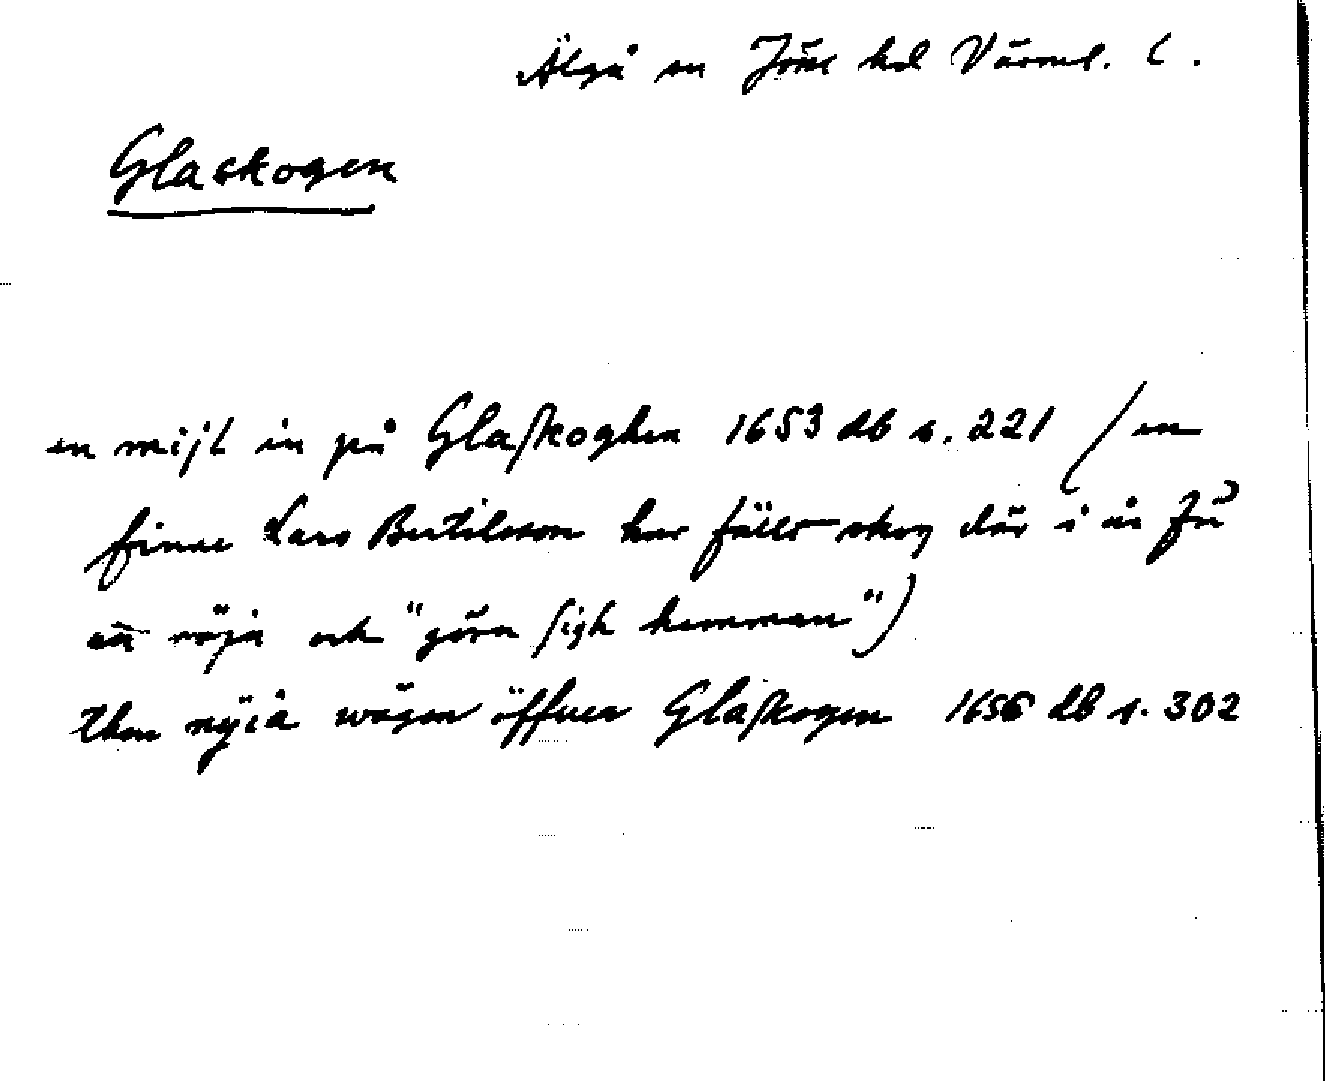 Älgå sn Jösse hd Värml. l.
Glaskogen
en mijl in på Glaſkoghen 1653 db s. 221 (en
finne Lars Bertilsson har fällt skog där i år för
att röja och "göra ſigh hemman")
then nyia wägen öffuer Glaſkogen 1656 db s. 302